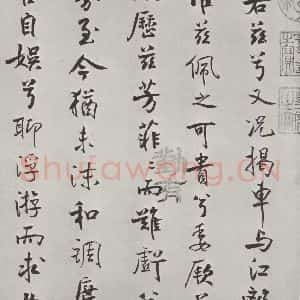 若茲兮又況揭車与江離
惟茲佩之可貴兮委厥
歷茲芳菲〻而難虧
芬至今猶未沫和調度
自娛兮聊浮游而求
Shufawang.CN